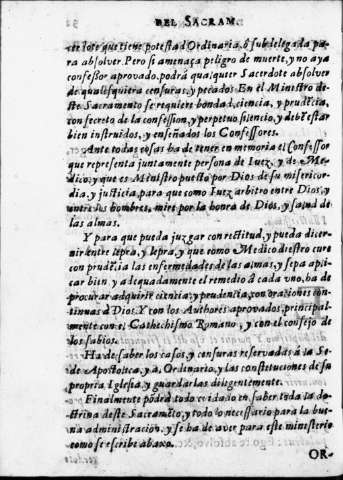 DEL SACRAM.
cerdote que tiene potestad Ordinaria, ó subdelegada pa-
ra absolver. Pero si amenaça peligro de muerte, y no aya
confessor aprovado, podrá qualquier Sacerdote absolver
de qualesquiera censuras, y pecados. En el Ministro des-
te Sacramento se requiere bondad, ciencia, y prudēcia,
con secreto de la confession, y perpetuo silencio, y debē estar
bien instruidos, y enseñados los Confessores.
Ante todas cosas ha de tener en memoria el Confessor
que representa juntamente persona de Iuez, y de Me-
dico, y que es Ministro puesto por Dios de su misericor-
dia, y justicia, para que como Iuez arbitro entre Dios, y
entre los hombres, mire por la honra de Dios, y salud de
las almas.
Y para que pueda juzgar con rectitud, y pueda dicer-
nir entre lepra, y lepra, y que como Medico diestro cure
con prudēcia las enfermedades de las almas, y sepa apli-
car bien, y adequadamente el remedio á cada vno, ha de
procurar adquirir ciencia, y prudencia, con oraciones con-
tinuas á Dios, Y con los Authores aprovados, principal-
mente con el Cathechismo Romano, y con el consejo de
los sabios.
Ha de saber los casos, y censuras reservadas á la Se-
de Apostolica, y á, Ordinario, y las constituciones de su
propria Iglesia, y guardarlas diligentemente.
Finalmente pōdrá todo cuidado en saber toda la do-
ctrina deste Sacramēto, y todo lo necessario para la bue-
na administración, y se ha de aver para este ministerio
como se escribe abaxo.
OR-